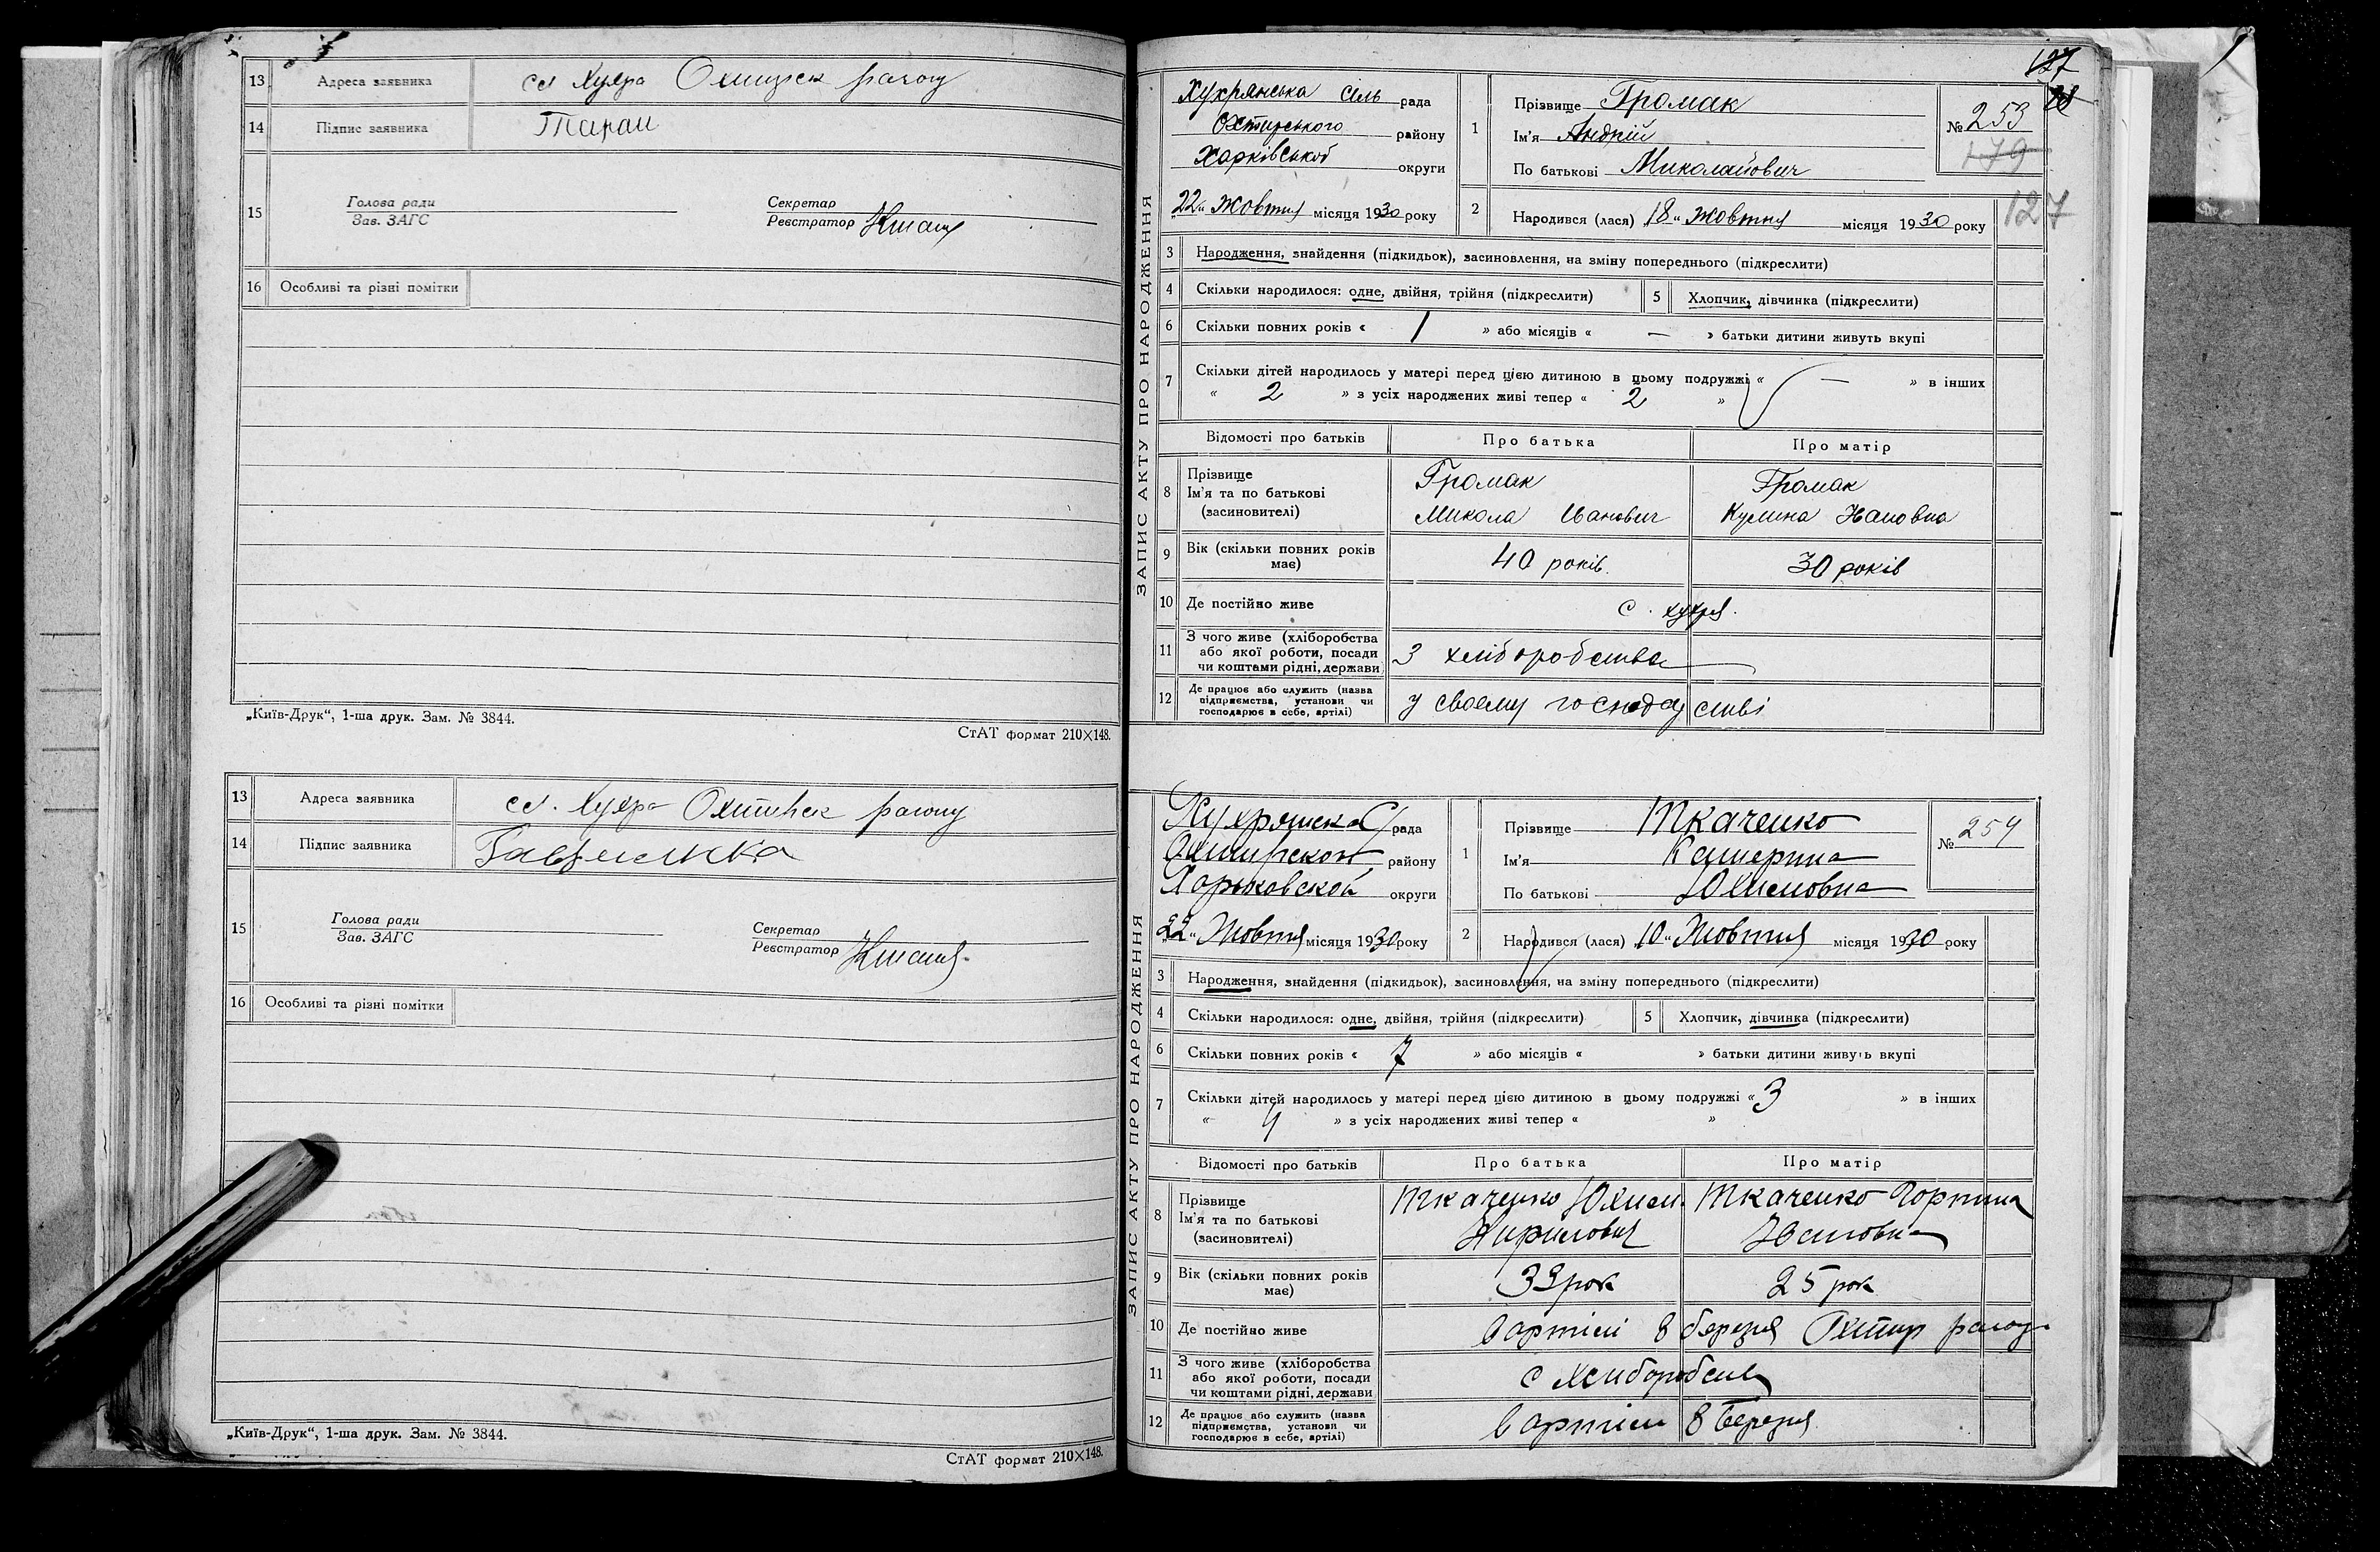 13 Адреса заявника сл Хухра Охтирск району
14 Підпис заявника Таран
15 Голова ради
Зав. ЗАГС
Секретар
Реєстратор
16 Особливі та різні помітки
„Київ-Друк“, 1-ша друк. Зам. № 3844.
СтАТ формат 210×148.
13 Адреса заявника сл. Хухра Охтирск району
14 Підпис заявника
15 Голова ради
Зав. ЗАГС
Секретар
Реєстратор
16 Особливі та різні помітки
„Київ-Друк“, 1-ша друк. Зам. № 3844.
СтАТ формат 210×148.
127
ЗАПИС АКТУ ПРО НАРОДЖЕННЯ
Хухрянська сіль рада
Охтирського району
Харківської округи
22 „ Жовтня місяця 1930 року
1 Прізвище Громак
Ім'я Андрій
По батькові Миколайович
№ 253
179
127
2 Народився (лася) „18 „ жовтня місяця 1930 року
3 Народження, знайдення (підкидьок), засиновлення, на зміну попереднього (підкреслити)
4 Скільки народилося: одне, двійня, трійня (підкреслити) 5 Хлопчик, дівчинка (підкреслити)
6 Скільки повних років « 1 » або місяців « — » батьки дитини живуть вкупі
7 Скільки дітей народилось у матері перед цією дитиною в цьому подружжі « — » в інших
« 2 » з усіх народжених живі тепер « 2 »
Відомості про батьків Про батька Про матір
8 Прізвище
Ім'я та по батькові
(засиновителі)
Громак
Микола Іванович
Громак
Кулина Івановна
9 Вік (скільки повних років має) 40 років. 30 років
10 Де постійно живе с. хухря.
11 З чого живе (хліборобства
або якої роботи, посади
чи коштами рідні, держави
З хліборобства
12 Де працює або служить (назва
підприємства, установи чи
господарює в себе, артілі)
у своему господарстві
ЗАПИС АКТУ ПРО НАРОДЖЕННЯ
Хухрянска С/рада
Охтирской району
Харьковской округи
22 „ Жовтня місяця 1930 року
1 Прізвище Ткаченко
Ім'я Катерина
По батькові Юхимовна
№ 254
2 Народився (лася) „10 „ Жовтня місяця 1930 року
3 Народження, знайдення (підкидьок), засиновлення, на зміну попереднього (підкреслити)
4 Скільки народилося: одне, двійня, трійня (підкреслити) 5 Хлопчик, дівчинка (підкреслити)
6 Скільки повних років « 7 » або місяців « » батьки дитини живуть вкупі
7 Скільки дітей народилось у матері перед цією дитиною в цьому подружжі « 3 » в інших
« 4 » з усіх народжених живі тепер « »
Відомості про батьків Про батька Про матір
8 Прізвище
Ім'я та по батькові
(засиновителі)
Ткаченко Юхим.
Кирилович
Ткаченко Горпина
Івановна
9 Вік (скільки повних років має) 33 рок 25 рок
10 Де постійно живе в артілі 8 березня Охтир району
11 З чого живе (хліборобства
або якої роботи, посади
чи коштами рідні, держави
с хлиборобства
12 Де працює або служить (назва
підприємства, установи чи
господарює в себе, артілі)
в артили 8 березня